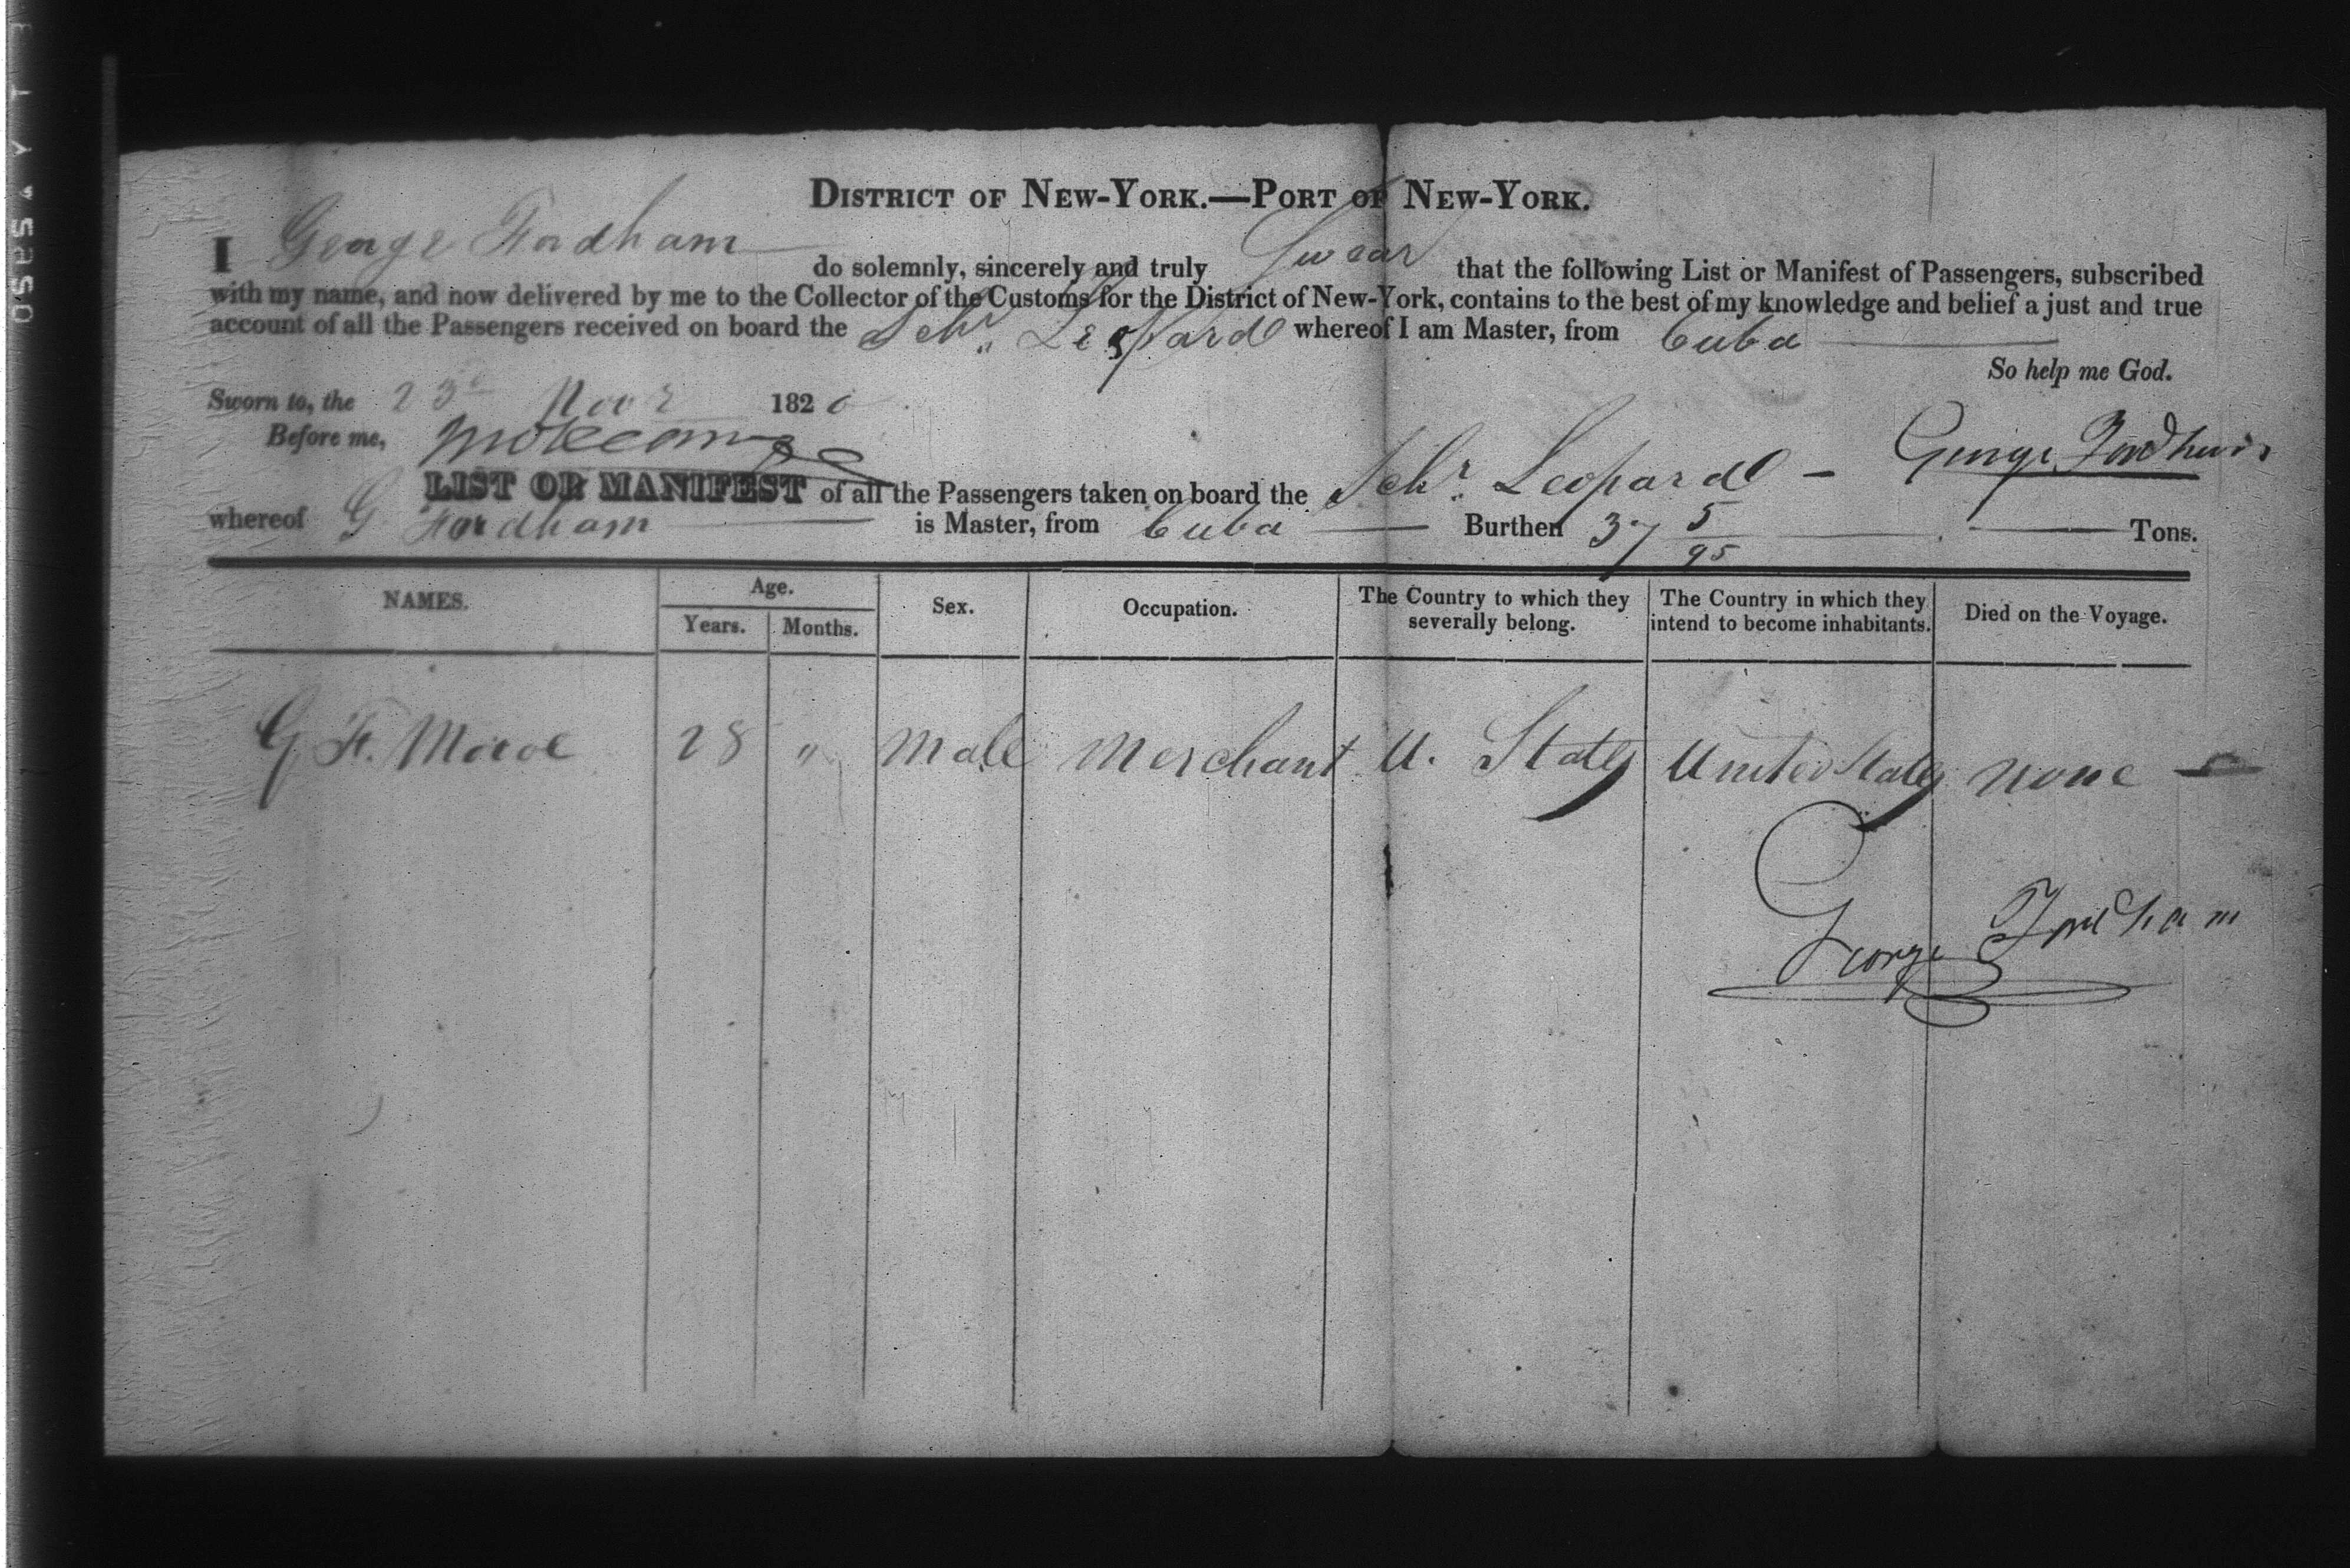 DISTRICT OF NEW-YORK.—PORT OF NEW-YORK.
I George Fordham do solemnly, sincerely and truly Swear that the following List or Manifest of Passengers, subscribed
with my name, and now delivered by me to the Collector of the Customs for the District of New-York, contains to the best of my knowledge and belief a just and true
account of all the Passengers received on board the Schr. Leopard whereof I am Master, from Cuba
So help me God.
Sworn to, the 23d Novr 1820
Before me,
George Fordham
LIST OR MANIFEST of all the Passengers taken on board the Schr. Leopard —
whereof G Fordham is Master, from Cuba Burthen 37 5/95 Tons.
NAMES. Age. Years. Months. Sex. Occupation. The Country to which they severally belong. The Country in which they intend to become inhabitants. Died on the Voyage.
G F. 28 " Male Merchant U. States United States None
George Fordham